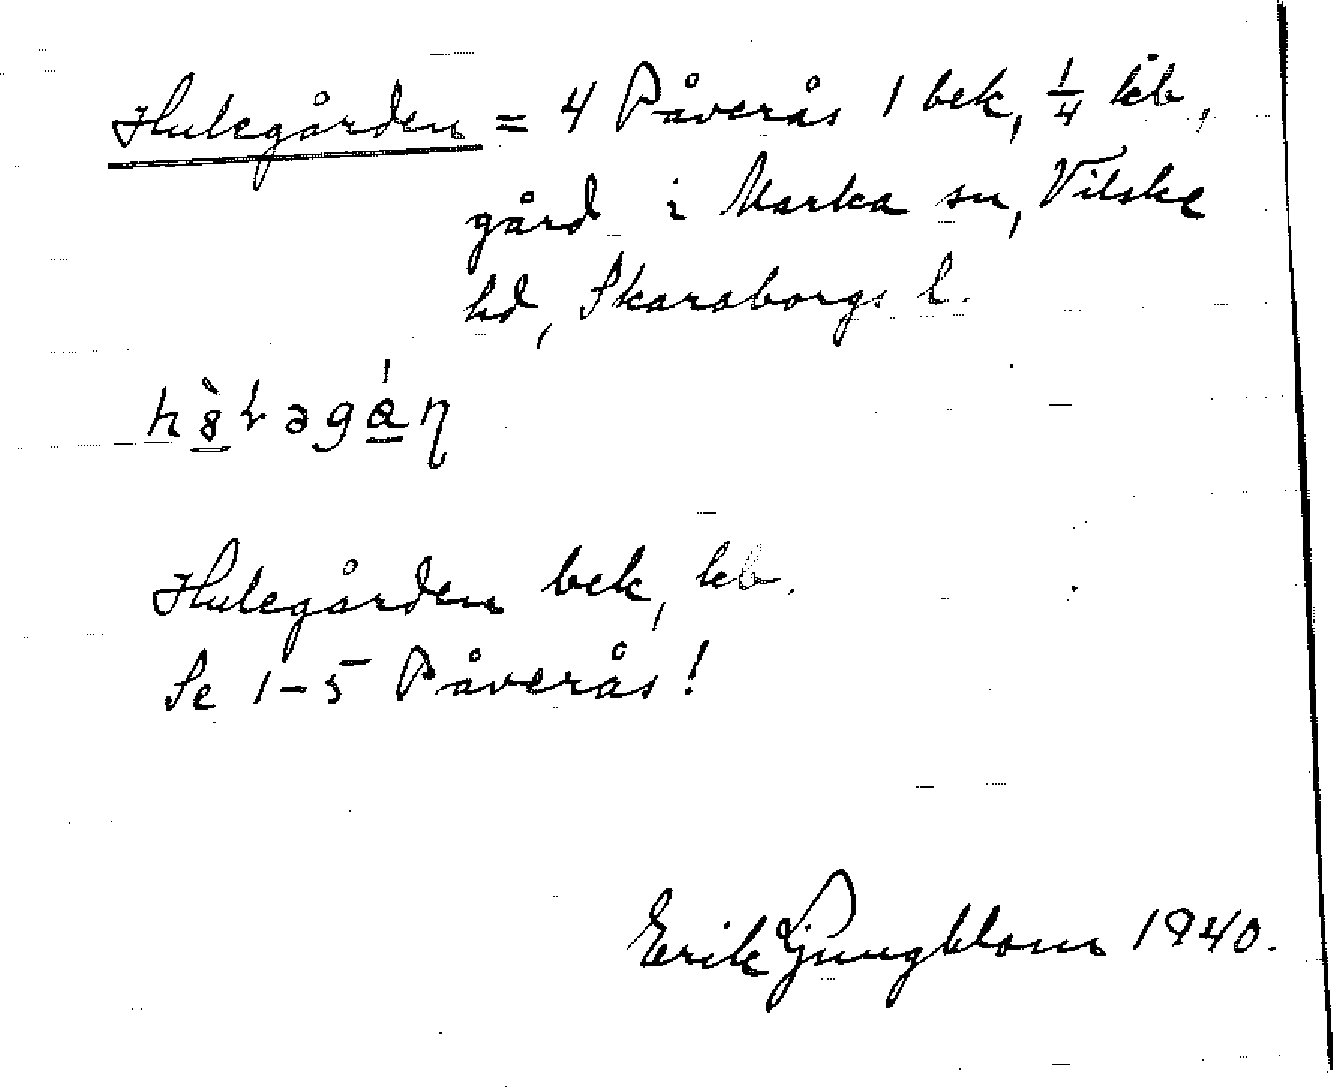 Hulegården = 4 Påverås 1 bek, 1/4 kb,
gård i Marka sn, Vilske
hd, Skaraborgs l.
Hulegården bek, kb.
Se 1-5 Påverås!
Erik Ljungblom 1940.